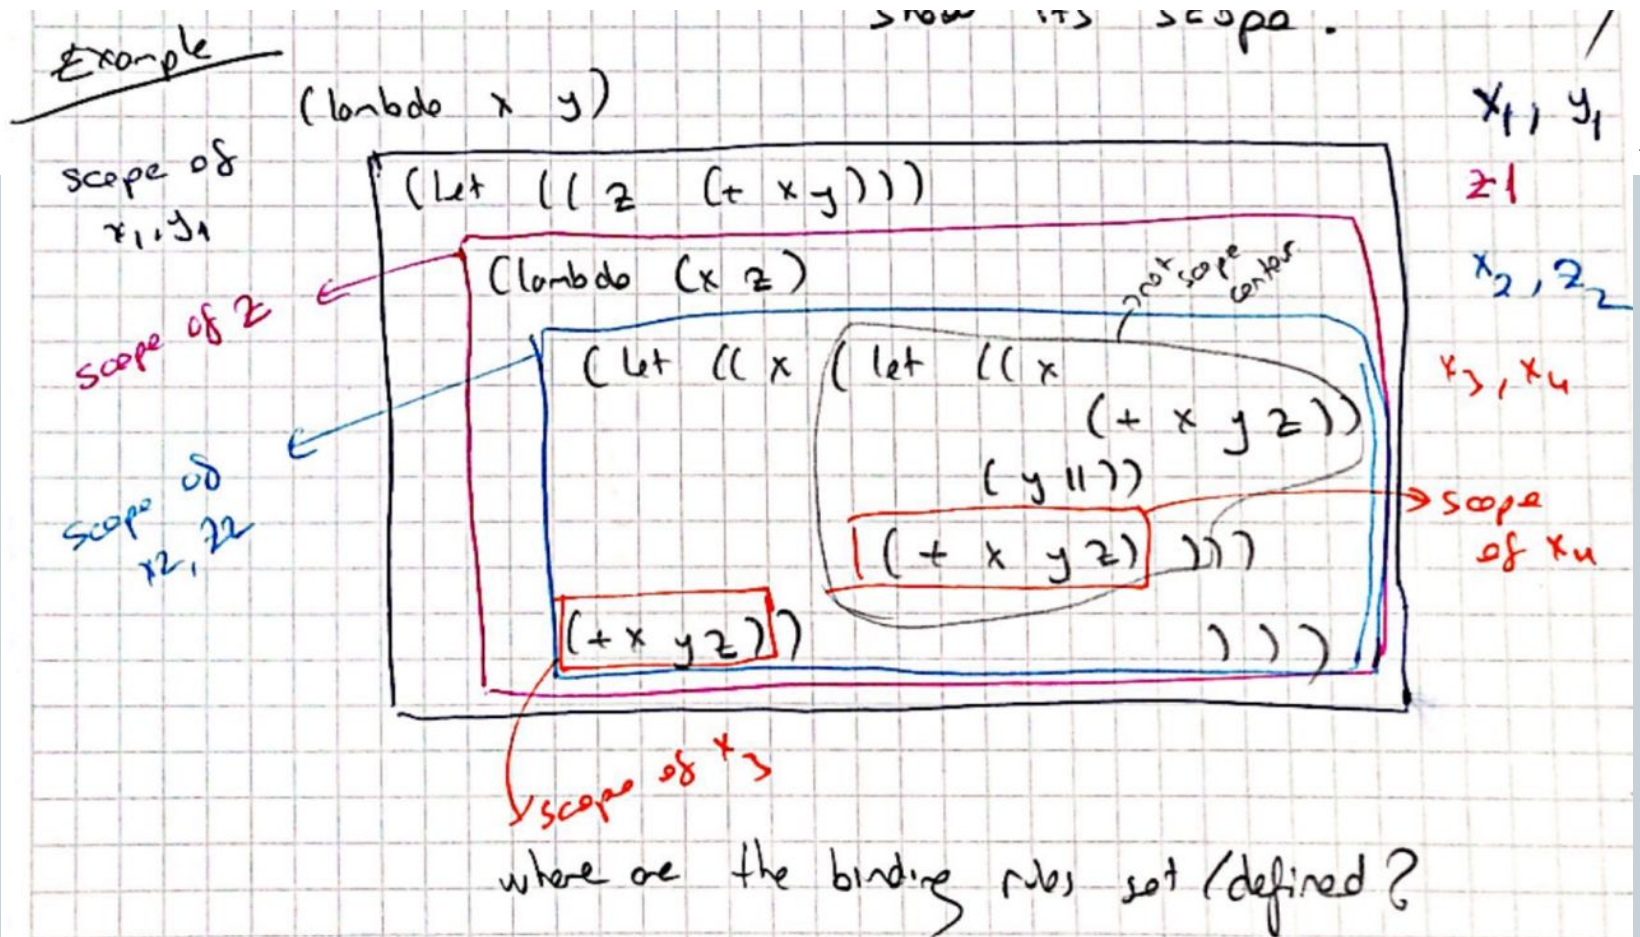 show its scope.
Example
(lambda x y)
x1, y1
scope of
x1, y1
(Let ((z (+ x y)))
z1
(lambda (x z)
not scope
x2, z2
scope of z
(let ((x (let ((x
x3, x4
(+ x y z))
(y 11))
scope of
x2, z2
(+ x y z) )))
scope
of x4
(+ x y z))
)))
scope of x3
where are the binding rules set/defined?